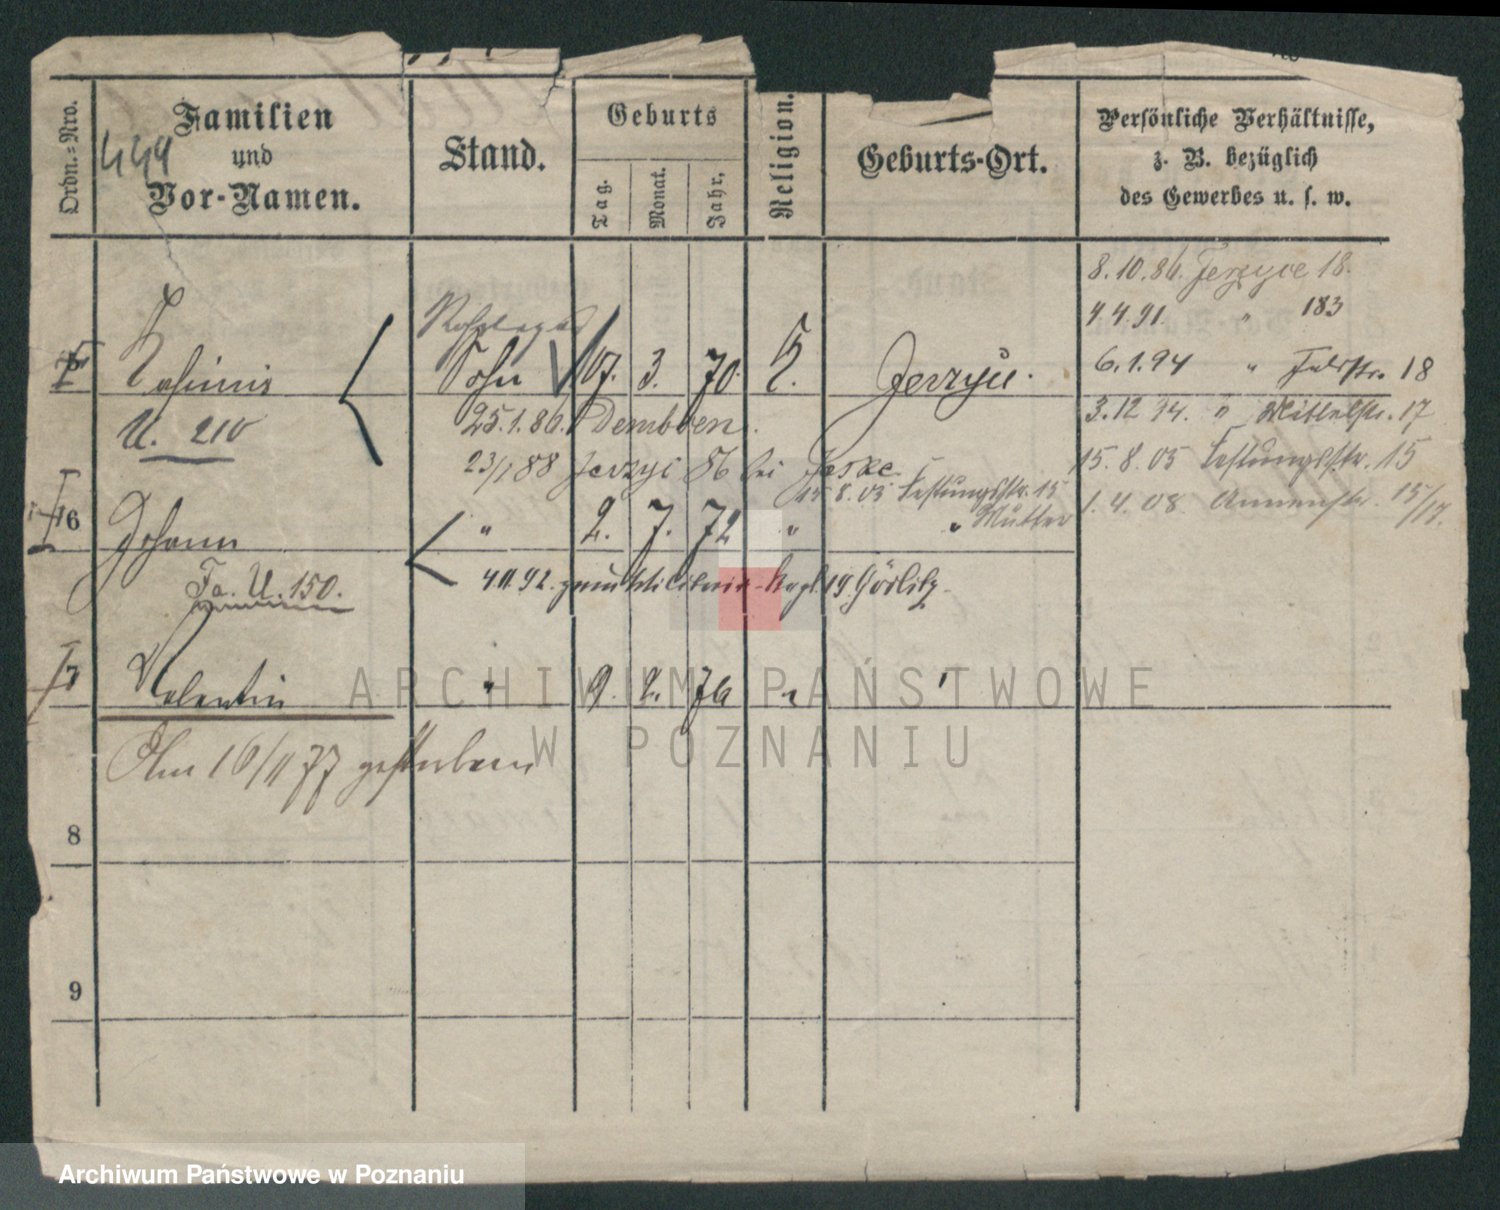 Ordn.=Nro.
Familien
und
Vor-Namen.
Stand.
Geburts
Tag.
Monat.
Jahr.
Religion.
Geburts-Ort.
Persönliche Verhältnisse,
z. B. bezüglich
des Gewerbes u. s. w.
8.10.86. Jerzyce 18.
4.4.91. " 183
Kasimir Sohn 17. 3. 70. K. Jerzyce.
6.1.94 " Feldstr. 18
U. 210
25.1.86. Dembsen.
3.12.94. " Mittelstr. 17
23/1 88 Jerzyce 86 bei Jeske
15.8.05 Festungsstr. 15
15.8.05 Festungsstr. 15
Mutter
6 Johann " 2. 7. 72 " "
1.4.08. Annenstr. 15/17.
Fa. U. 150.
4.11.92. Regt. 19 Görlitz.
7 Valentin " 9. 2. 76 " "
ARCHIWUM PAŃSTWOWE
W POZNANIU
Am 16/11 77 gestorben
8
9
Archiwum Państwowe w Poznaniu